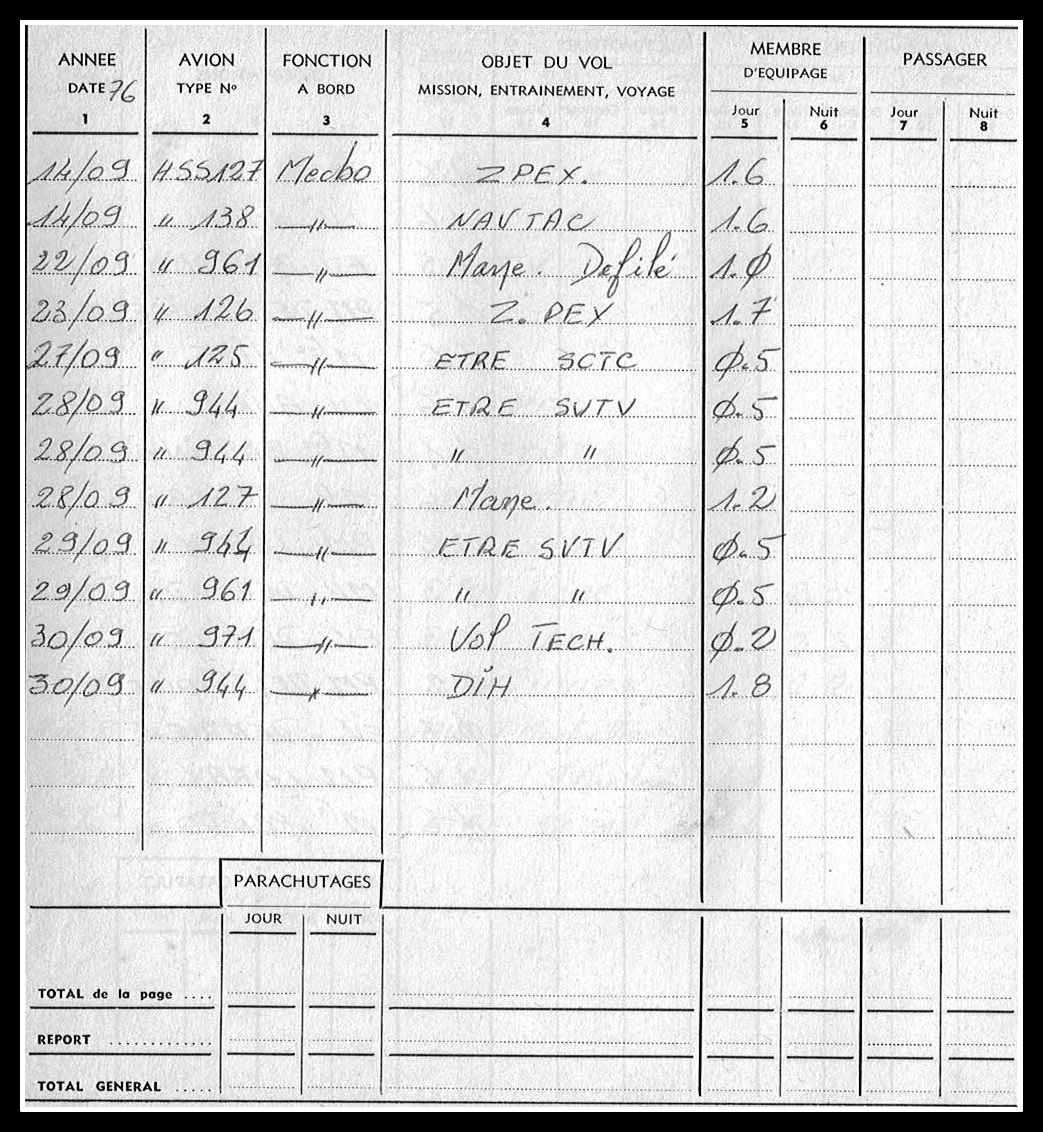 ANNEE AVION FONCTION OBJET DU VOL MEMBRE PASSAGER
DATE 76 TYPE No A BORD MISSION, ENTRAINEMENT, VOYAGE D'EQUIPAGE
Jour Nuit Jour Nuit
1 2 3 4 5 6 7 8
14/09 HSS127 Mecbo ZPEX. 1.6
14/09 " 138 —"— NAVTAC 1.6
22/09 " 961 —"— Defilé 1.Ø
23/09 " 126 —"— Z.PEX 1.7
27/09 " 125 —"— ETRE SCTC Ø.5
28/09 " 944 —"— ETRE SVTV Ø.5
28/09 " 944 —"— " " Ø.5
28/09 " 127 —"— 1.2
29/09 " 944 —"— ETRE SVTV Ø.5
29/09 " 961 —"— " " Ø.5
30/09 " 971 —"— Vol TECH. Ø.2
30/09 " 944 —"— DIH 1.8
PARACHUTAGES
JOUR NUIT
TOTAL de la page ....
REPORT ............
TOTAL GENERAL .....